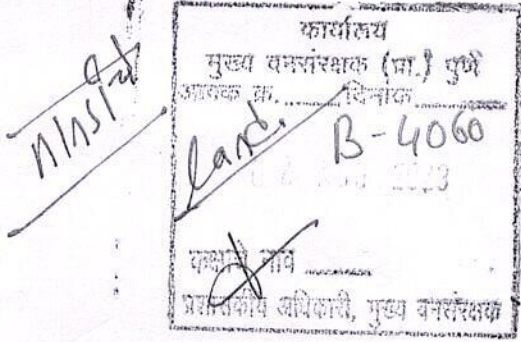 कार्यालय
मुख्य वनसंरक्षक (प्रा.) पुणे
आवक क्र. ........ दिनांक ............
B-4060
Land.
2023
कक्षाचे नाव ............
प्रशासकीय अधिकारी, मुख्य वनसंरक्षक